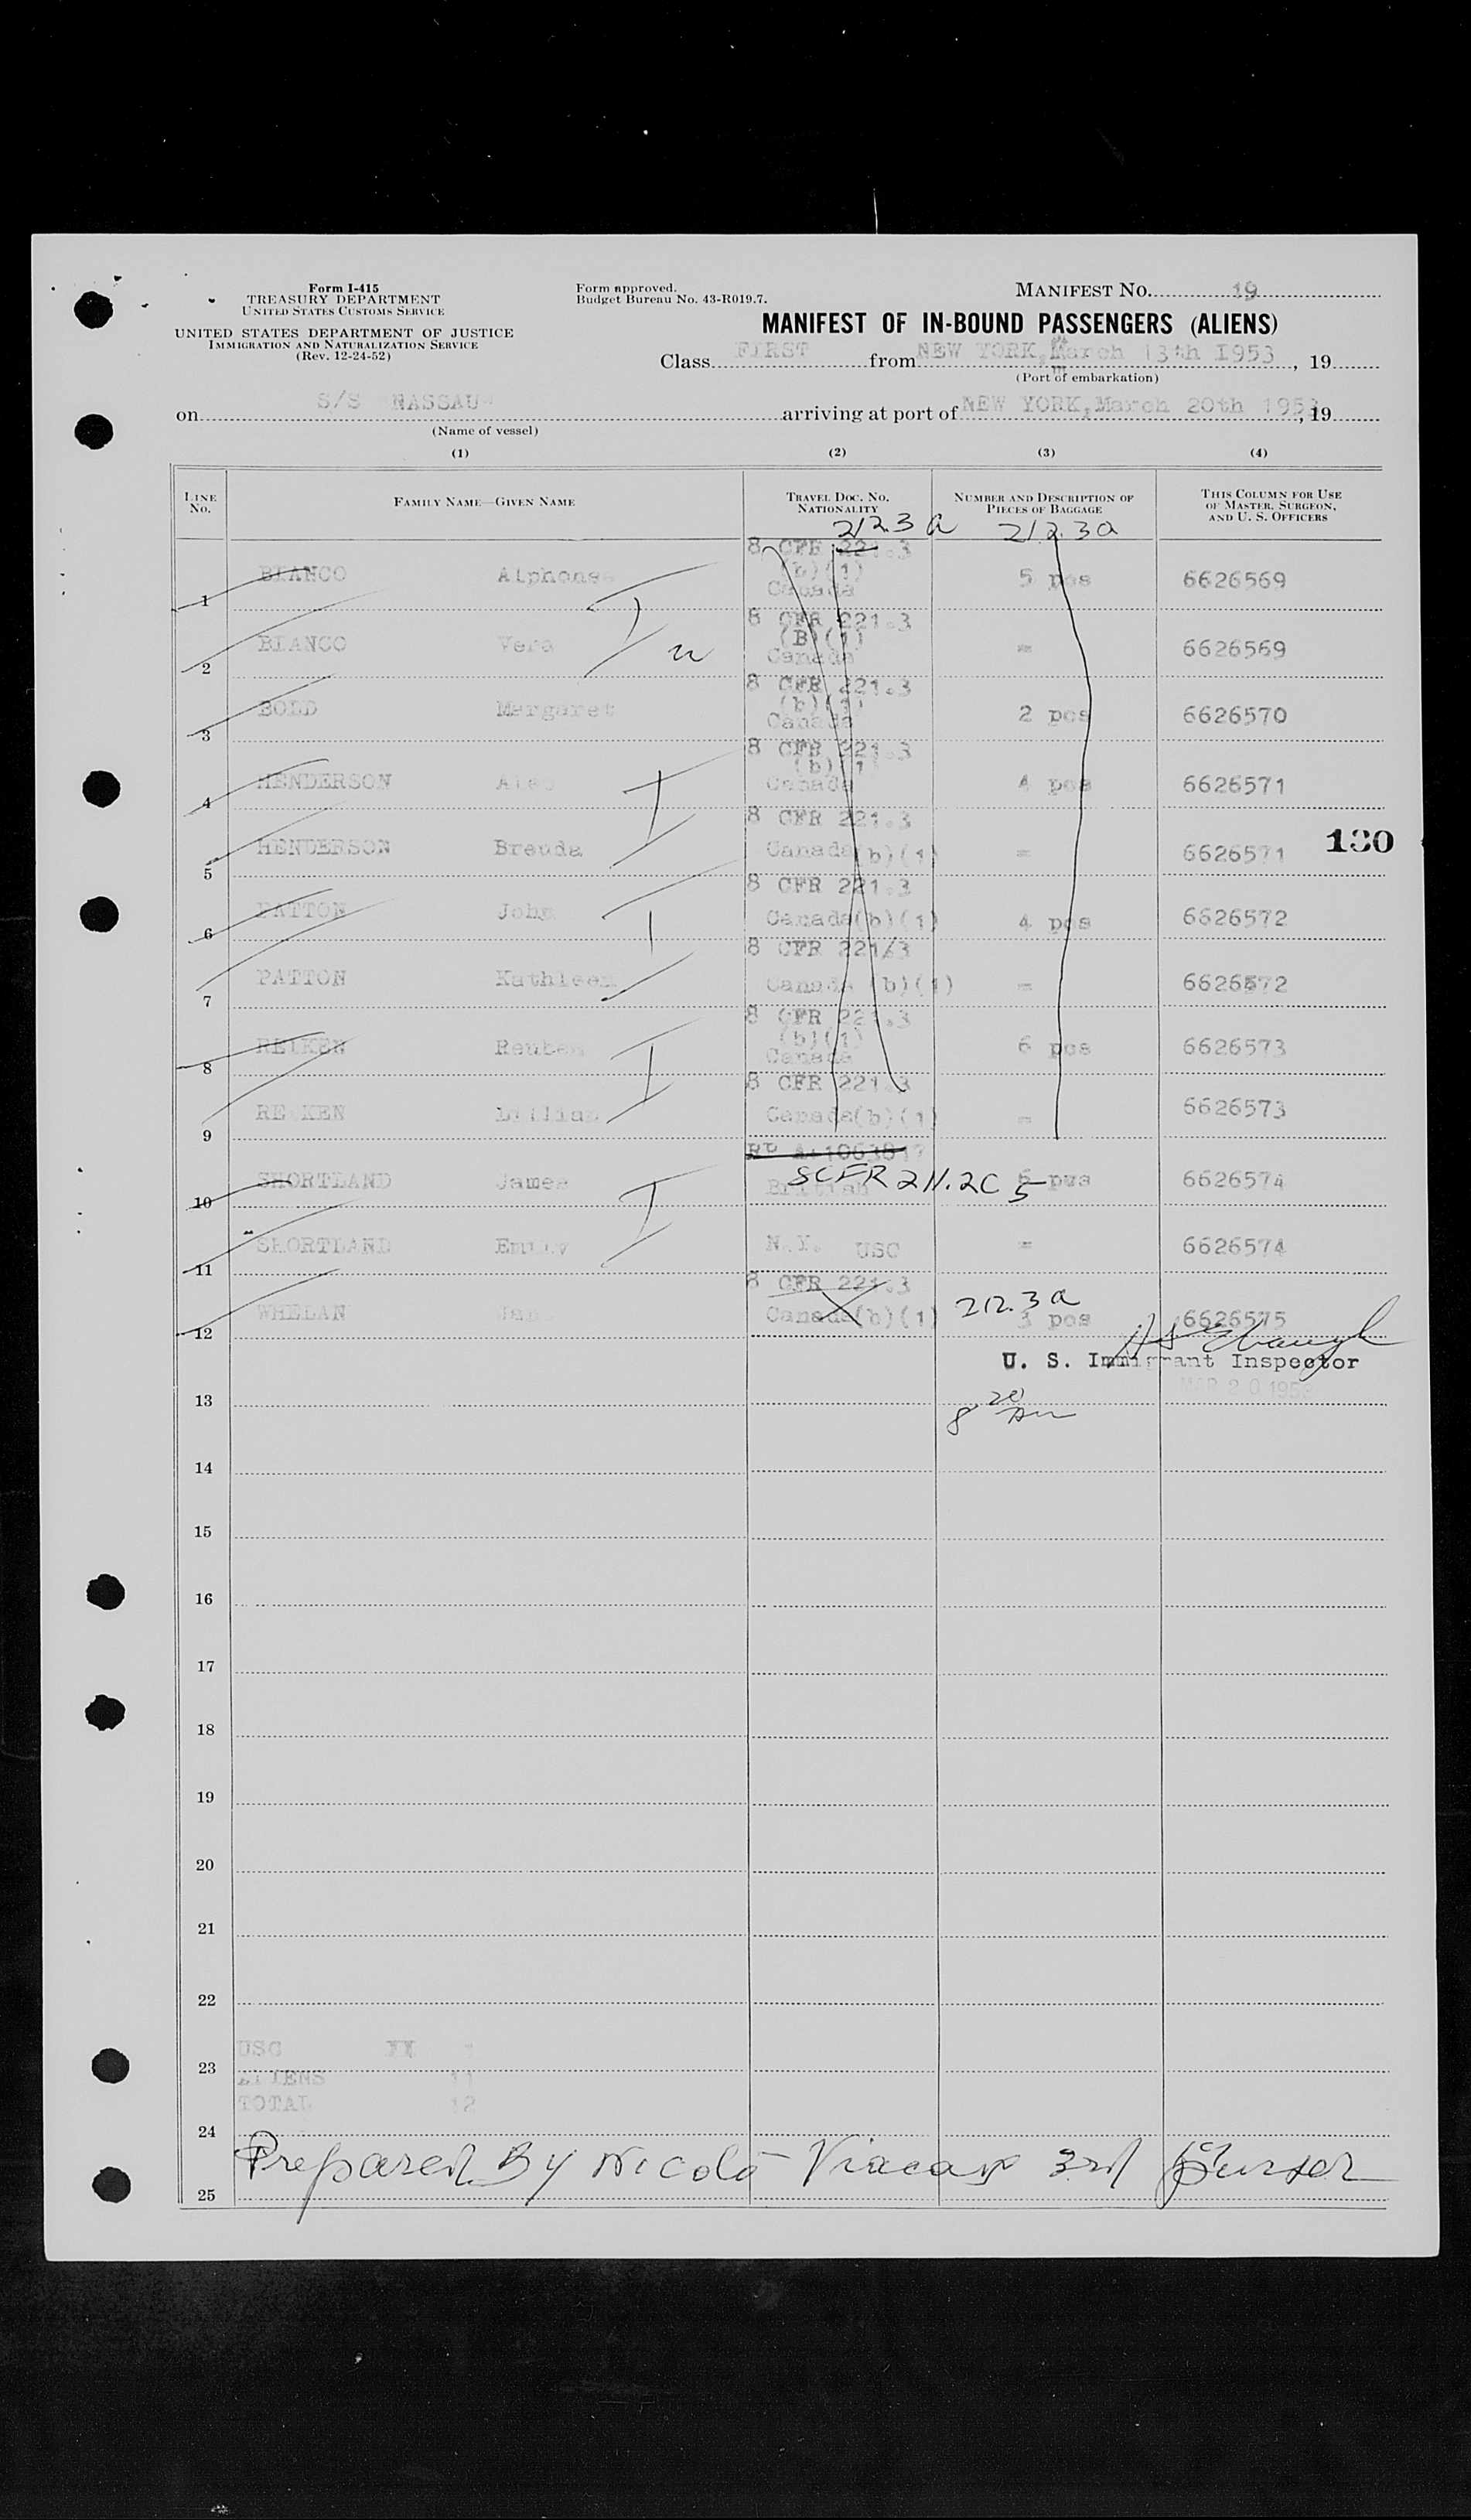 Form I-415
TREASURY DEPARTMENT
UNITED STATES CUSTOMS SERVICE
UNITED STATES DEPARTMENT OF JUSTICE
IMMIGRATION AND NATURALIZATION SERVICE
(Rev. 12-24-52)
Form approved.
Budget Bureau No. 43-R019.7.
MANIFEST NO. 19
MANIFEST OF IN-BOUND PASSENGERS (ALIENS)
Class FIRST from NEW YORK, March 13th 1953, 19
(Port of embarkation)
on S/S NASSAU arriving at port of NEW YORK, March 20th 1953, 19
(Name of vessel)
(1) (2) (3) (4)
LINE No. FAMILY NAME—GIVEN NAME TRAVEL DOC. NO. NATIONALITY NUMBER AND DESCRIPTION OF PIECES OF BAGGAGE THIS COLUMN FOR USE OF MASTER, SURGEON, AND U. S. OFFICERS
212.3 a 212.3a
8 CFR 221.3
(b)(1)
1 BIANCO Alphonse Canada 5 pcs 6626569
8 CFR 221.3
(B)(1)
2 BIANCO Vera Canada = 6626569
8 CFR 221.3
(b)(1)
3 BOLD Margaret Canada 2 pcs 6626570
8 CFR 221.3
(b)(1
4 HENDERSON Canada 4 pcs 6626571
8 CFR 221.3
5 HENDERSON Brenda Canada(b)(1) = 6626571
130
8 CFR 221.3
6 PATTON John Canada(b)(1) 4 pcs 6626572
8 CFR 221/3
7 PATTON Kathleen Canada (b)(1) = 6626572
8 CFR 221.3
(b)(1)
8 REIKEN Reuben Canada 6 pcs 6626573
8 CFR 221.3
9 REIKEN Lillian Canada(b)(1) = 6626573
10 SHORTLAND James British 8CFR 211.2C 5 pcs 6626574
11 SHORTLAND Emily N.Y. USC = 6626574
8 CFR 221.3
12 WHELAN Canada(b)(1) 212.3a 3 pcs 6626575
U. S. Immigrant Inspector
MAR 20 1953
13 8 20 Am
14
15
16
17
18
19
20
21
22
USC 1
23
ALIENS 11
TOTAL 12
24
Prepared By Nicolo 3rd Purser
25